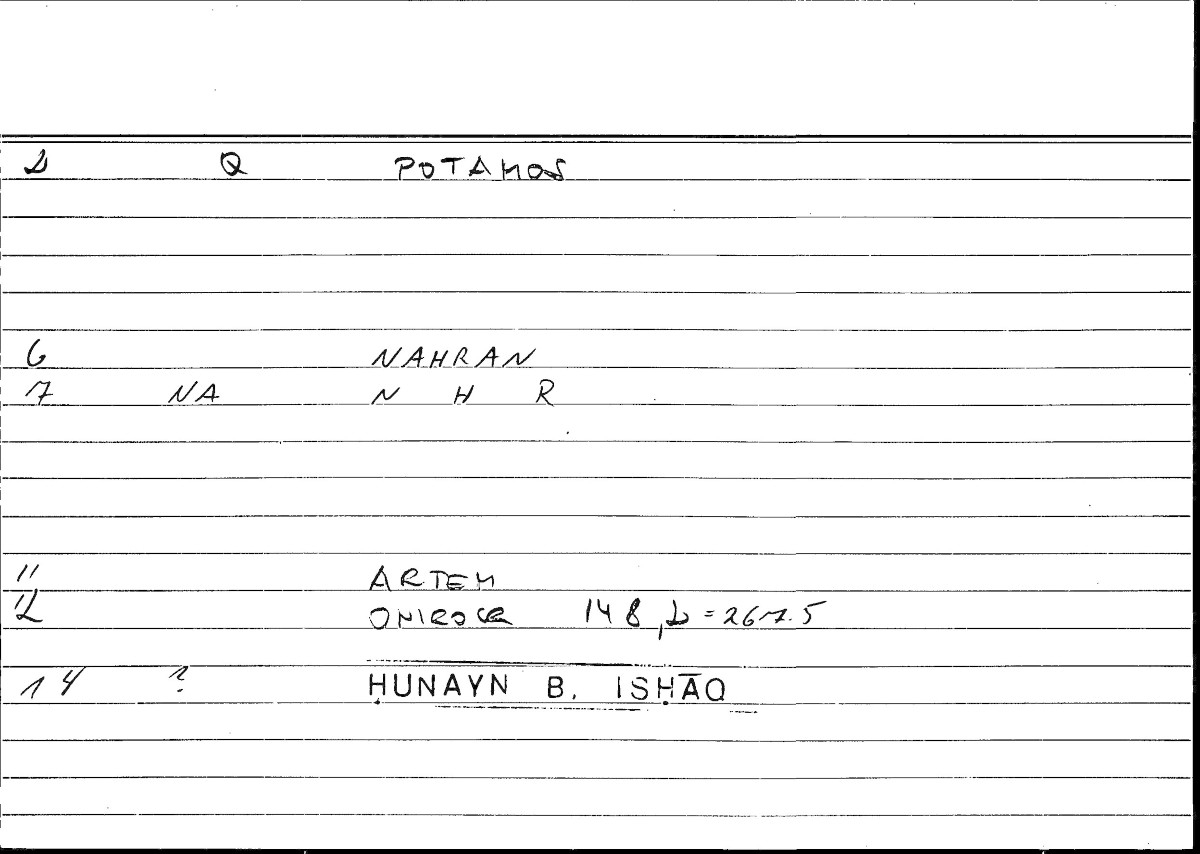 2 Q POTAMOS
6 NAHRAN
7 NA N H R
11 ARTEM
12 ONIROCR 148,2 = 267.5
14 ? ḤUNAYN B. ISḤĀQ